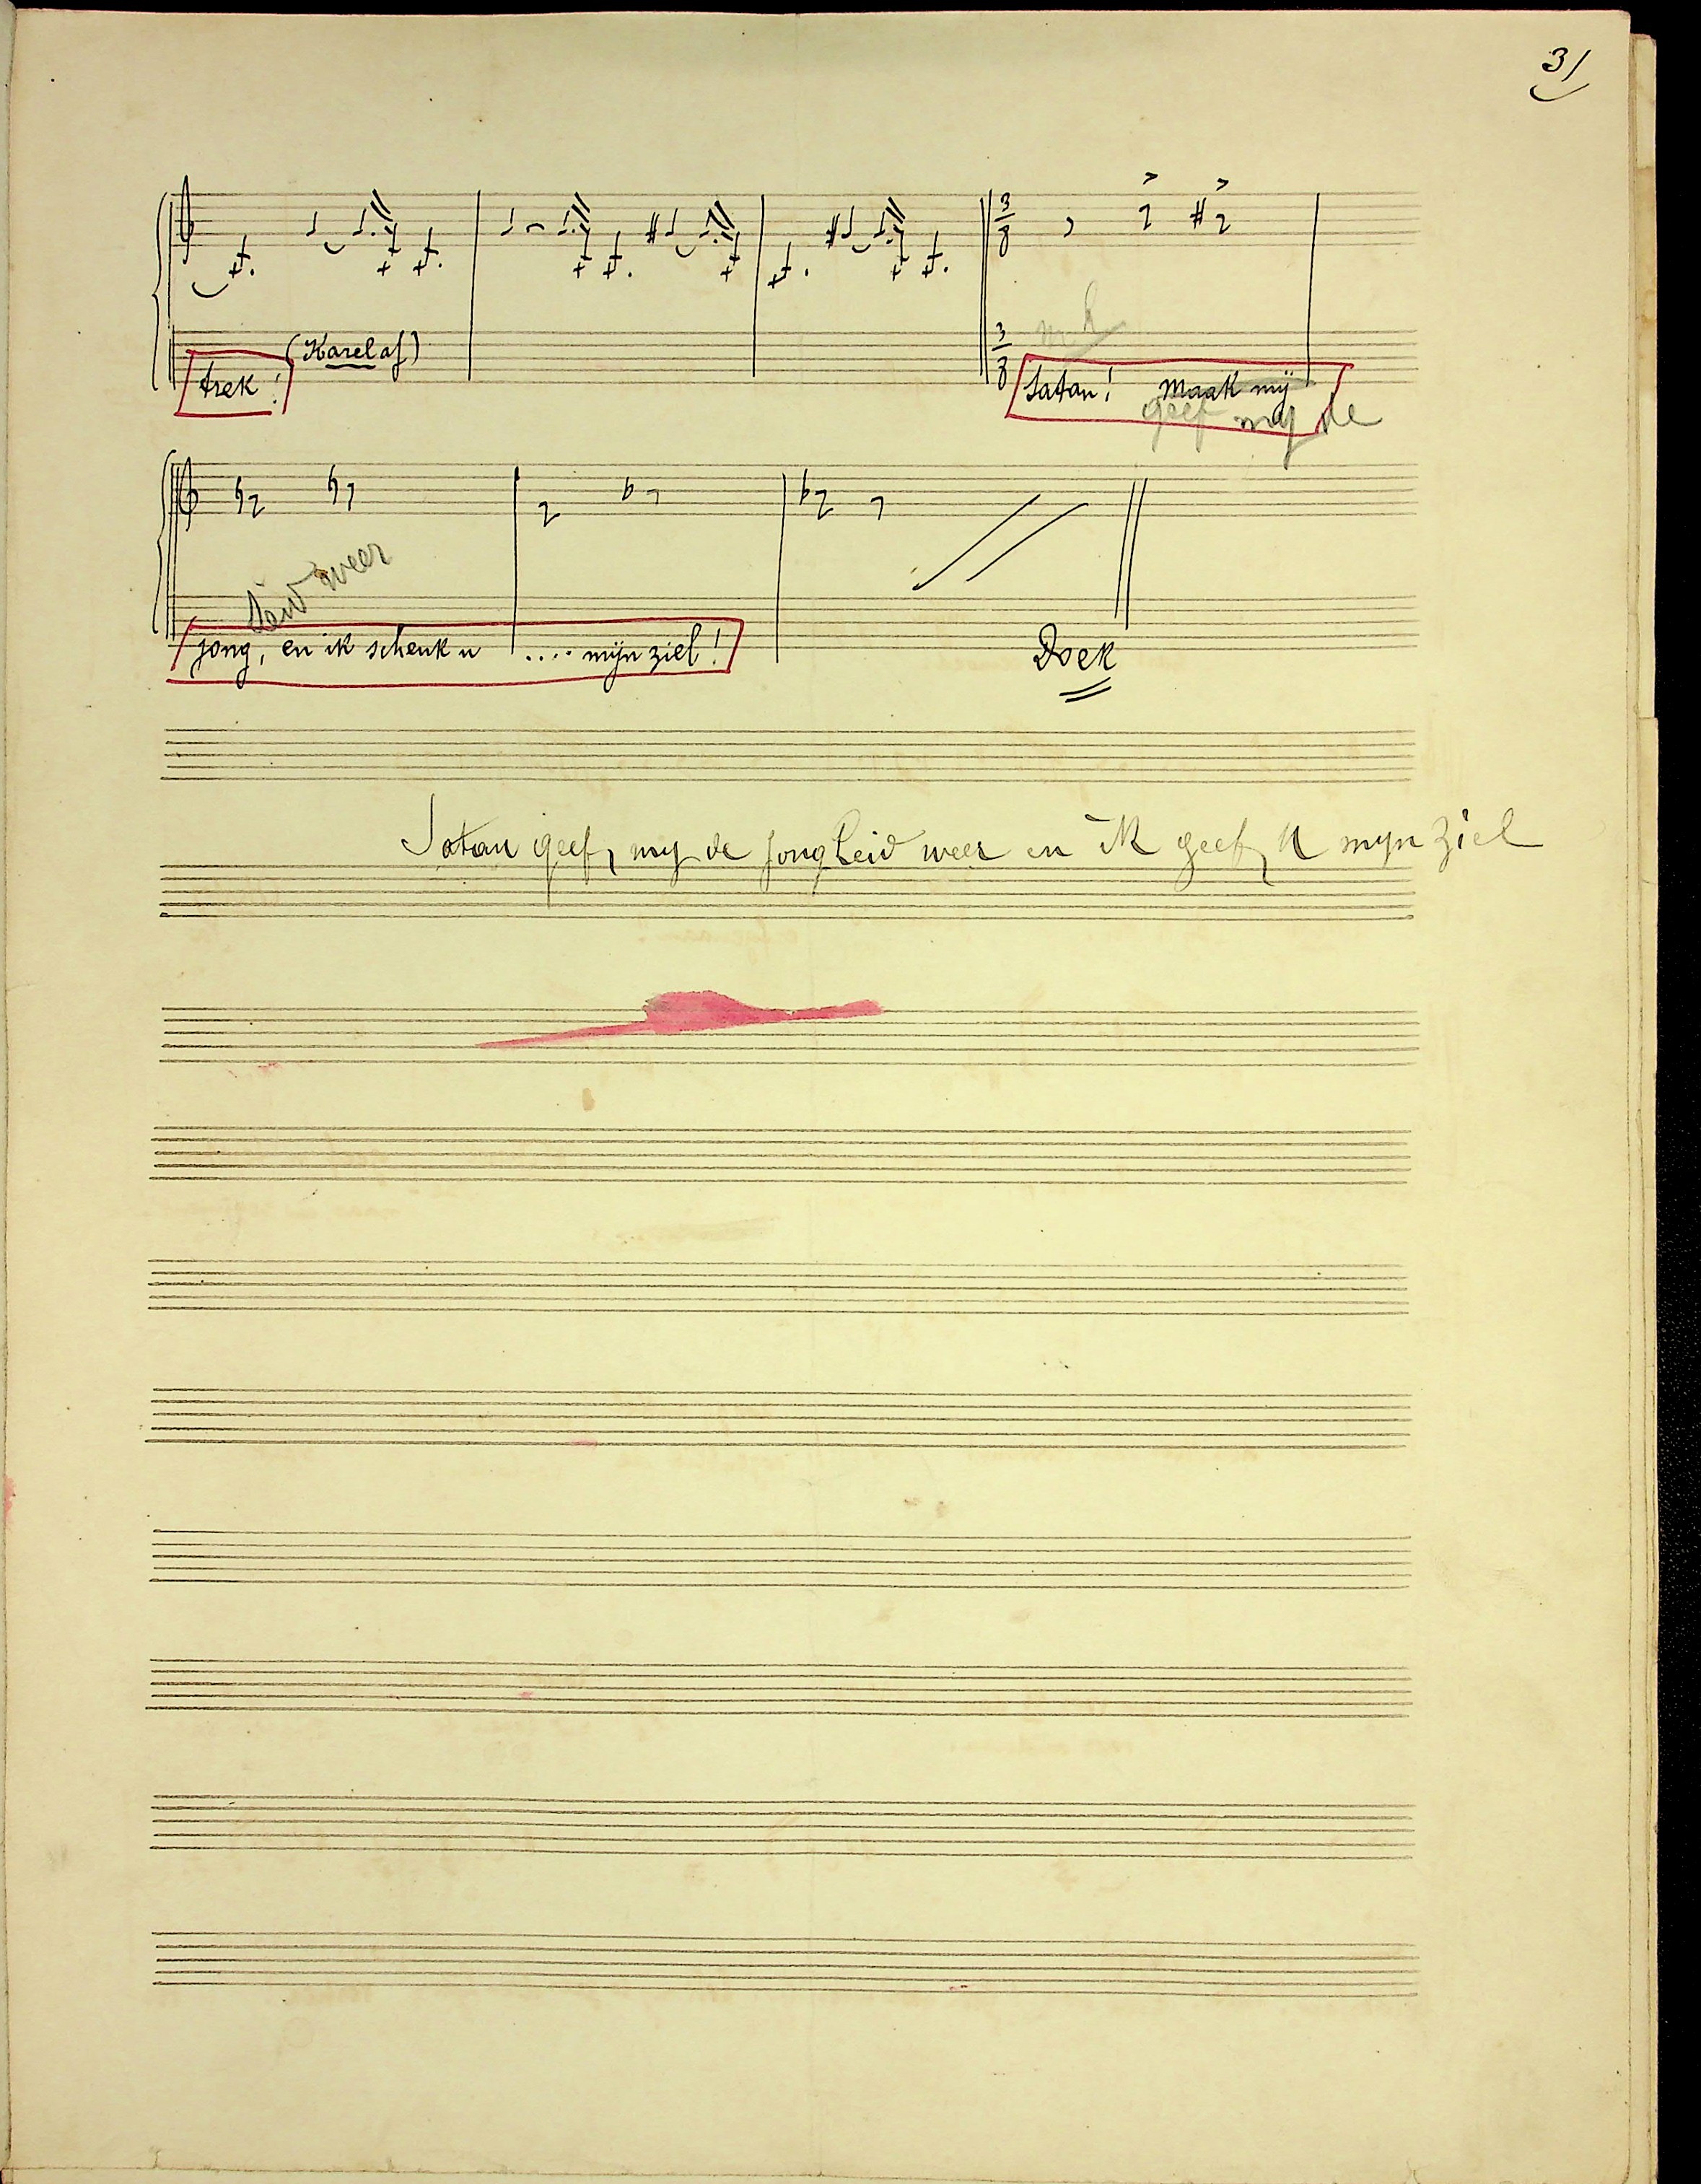 3/
(Karel af)
trek!
Satan! Maak mij
geef mij de
heid weer
jong, en ik schenk u .... mijn ziel!
Doek
Satan geef my de jongheid weer en ik geef U mijn ziel